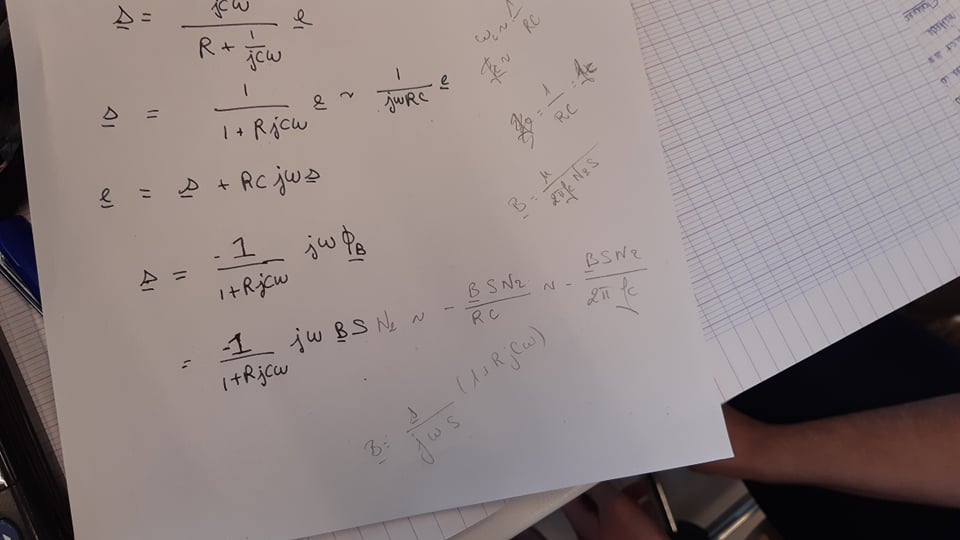 s = jCω / (R + 1/jCω) e
s = 1 / (1 + RjCω) e ~ 1 / (jωRC) e
e = s + RC jω s
s = -1 / (1+RjCω) jω ϕB
= -1 / (1+RjCω) jω B S N2 ~ - B S N2 / RC ~ - B S N2 / 2π fc
B = s / (jωS) (1+RjCω)
ωc ~ 1 / RC
fc ~
= 1 / RC = fc
B = s / (2π fc N2 S)